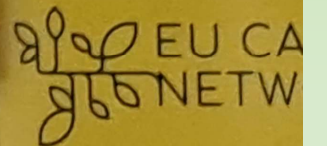 EU CA
NETW